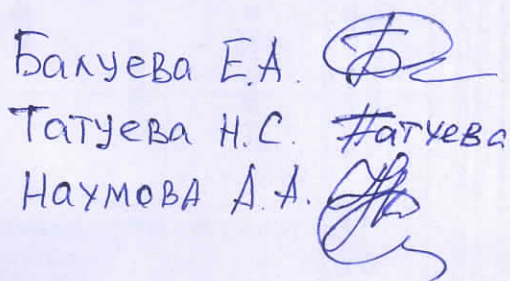 Балуева Е.А.
Татуева Н.С. Татуева
Наумова А.А.